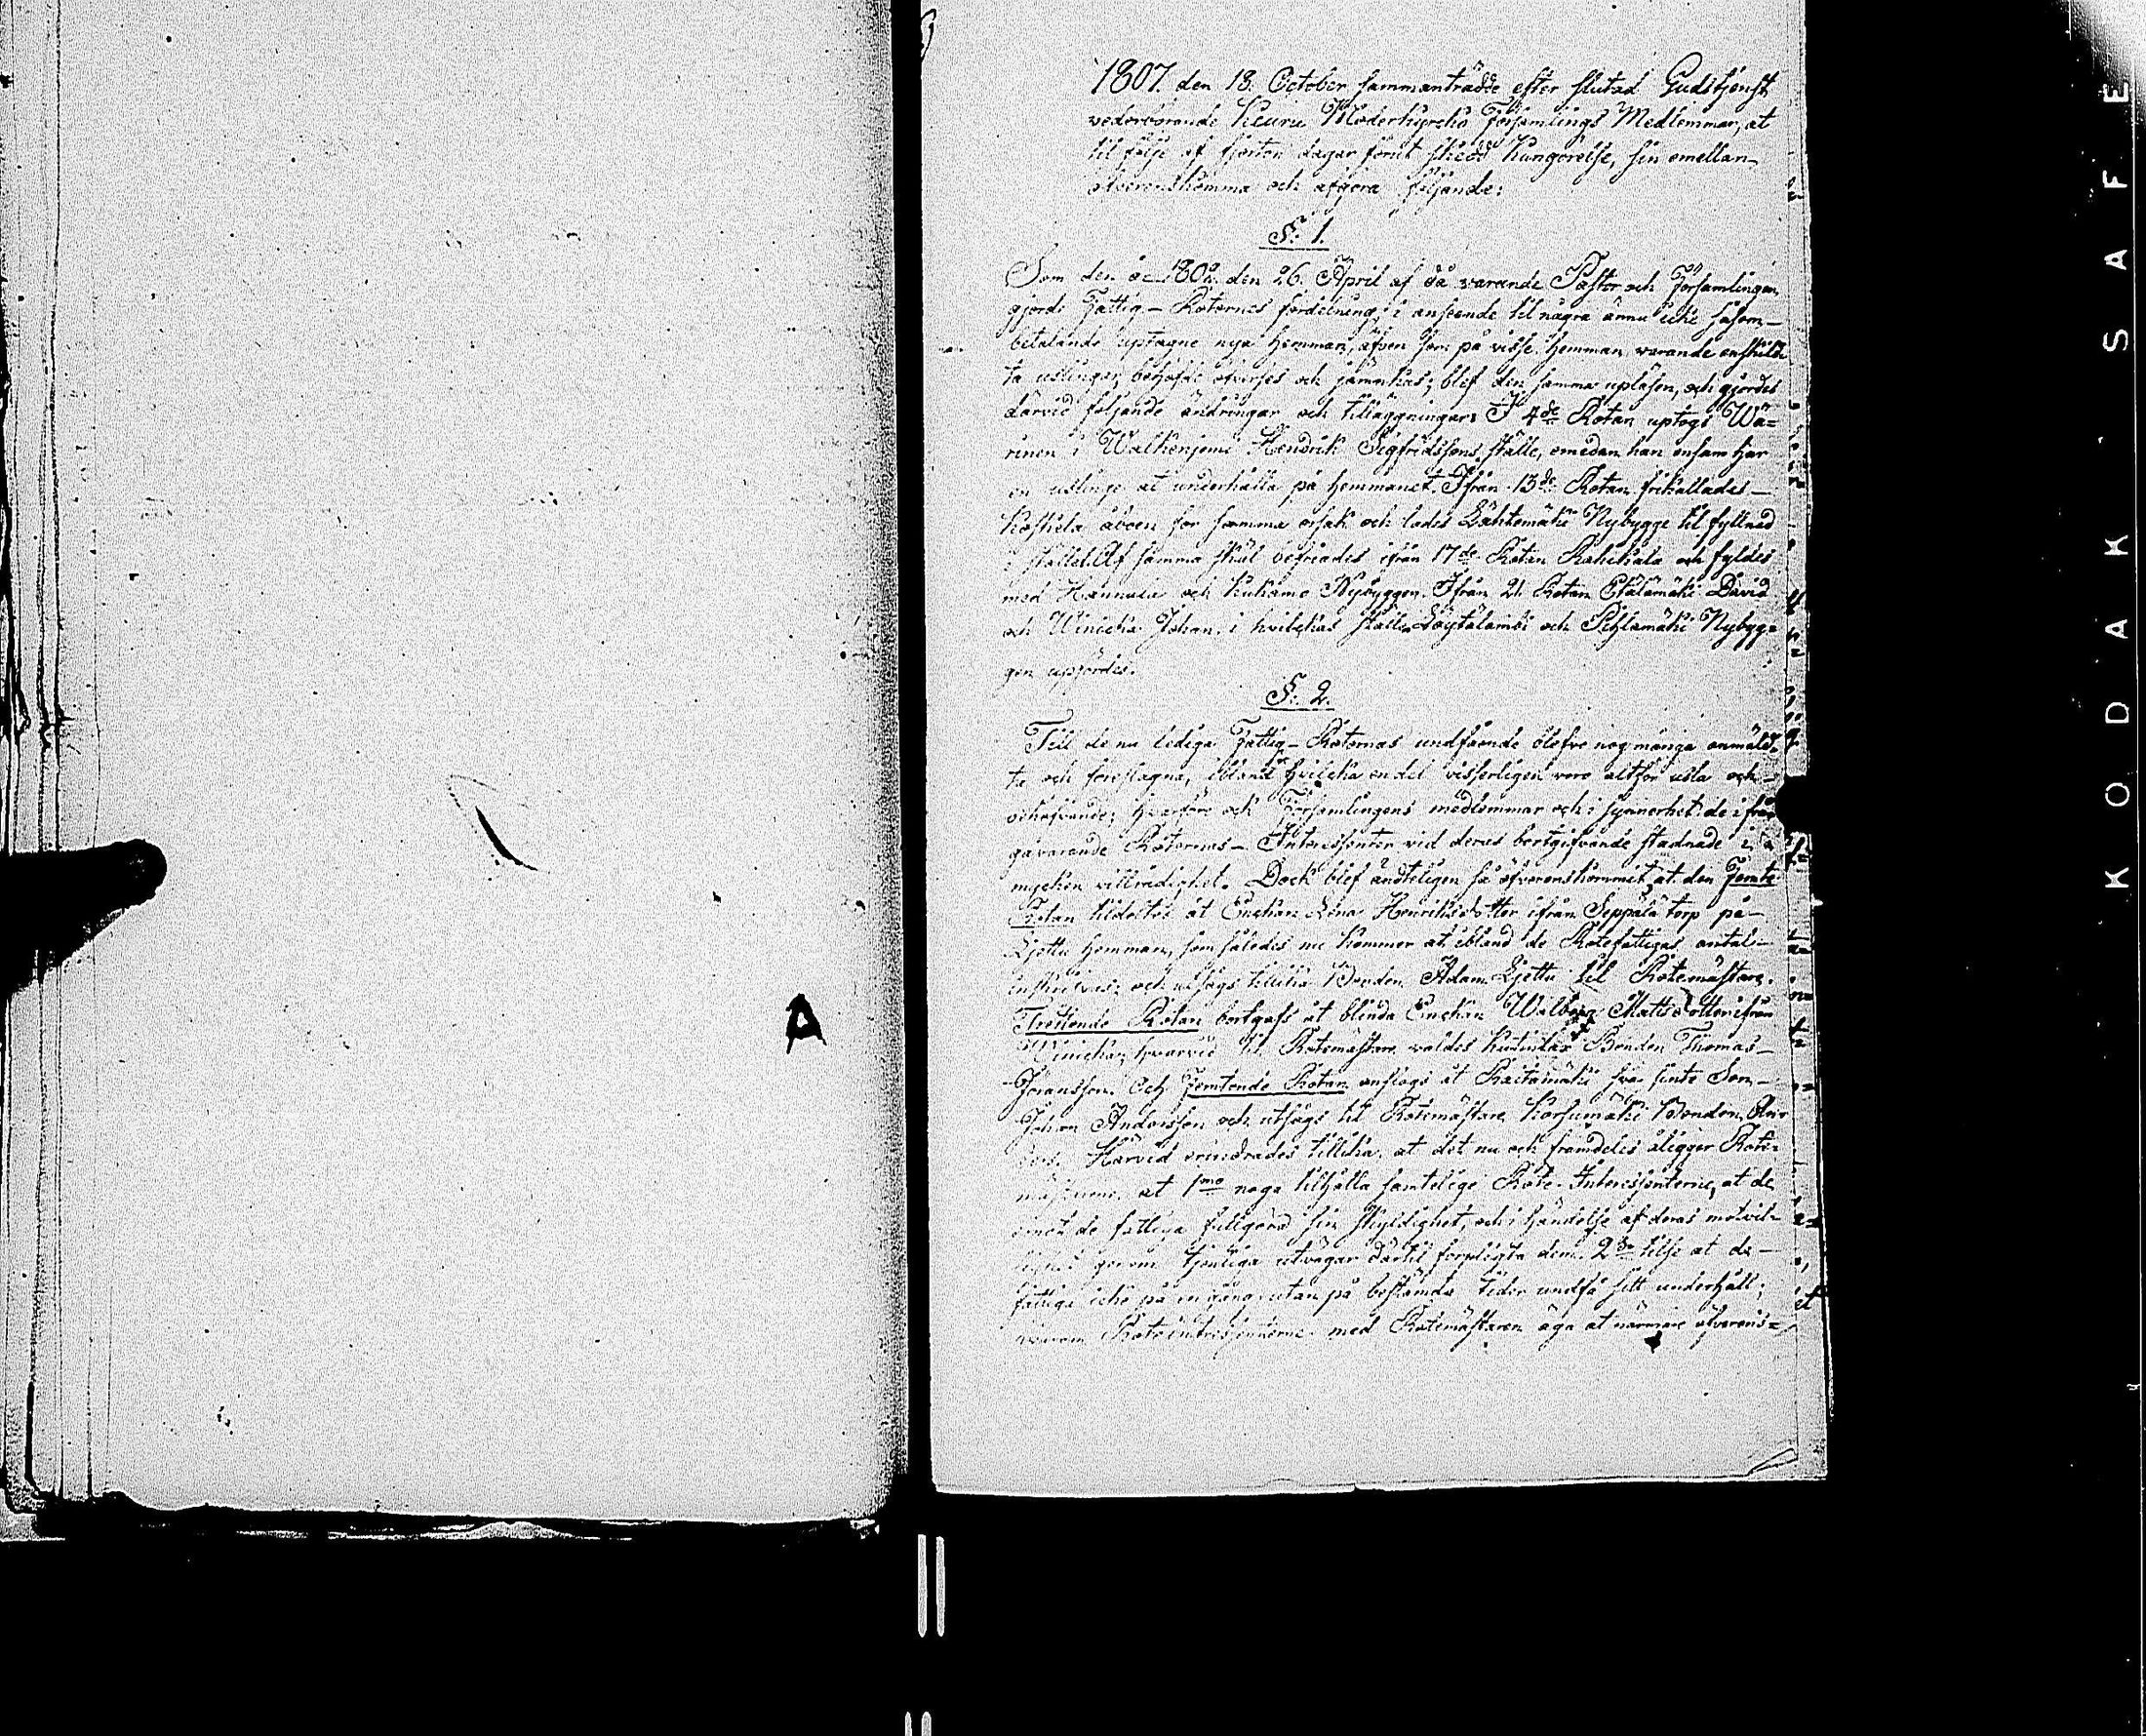 1807. den 18. October sammanträdde efter slutad Gudstjenst
vederbörande Keuru Moderkyrcko Församlings Medlemmar, at
til följe af fjorton dagar förut skedd Kungörelse, sin emellan
öfverenskomma och afgöra följande:
§. 1.
Som den år 180 den 26. April af då varande Pastor och Församlingen
gjorde Fattig-Rotornes fördelning, i anseende til några ännu icke såsom
betalande uptagne nya Hemman, äfven som på visse Hemman varande enskild
ta uslingar, behöfde öfverses och jämnkas; blef den samma upläsen, och gjordes
därvid följande ändringar och tilläggningar: I 4de Rotan uptogs Wä-
rinen i Walkenjemi Hendrik Sigfridssons ställe, emedan han ensam har
en usling at underhålla på hemmanet. Ifrån 13de Rotan frikallades
Koskela äfven för samma orsak och lades Lähtemäki Nybygge til fyllnad
i stället. Af samma skäl befriades ifrån 17de Rotan och fyldes
med Hannula och Kuhamo Nybyggen. Ifrån 21. Rotan Etälämäki David
och Winicka Johan, i hvilckas ställe Löytälambi och Pihlamäki Nybyg-
gen upfördes.
§. 2.
Till de nu lediga Fattig-Rotornas undfående blefvo nog många anmäl-
te och föreslagne, ibland hvilcka en del visserligen voro altför usla och
behöfvande; hvarföre och Församlingens medlemmar och i synnerhet de ifrån
gavarande Rotornas Interessenter vid deras bortgifvande stadnade i
mycken villrådighet. Dock blef ändteligen så öfverenskommit, at den Femte
Rotan tildeltes åt Enckan Lena Henriksdotter ifrån Seppälä torp på
Ljettu hemman, som således nu kommer at ibland de Rotefattigas antal
inskrifvas; och utsågs tillika Bonden Adam Ljettu til Rotemästare.
Trettonde Rotan bortgafs åt blinda Enckan Walborg Mattsdotter ifrån
Winicka, hvarvid til Rotemästare valdes Bonden Thomas
Johansson. Och Femtonde Rotan anslogs åt Raitamäki son
Johan Andersson och utsågs til Rotemästare Korsumäki Bonden An-
ders. Härvid erindrades tillika, at det nu och framdeles åligger Rote-
mästarne, at 1mo noga tilhålla samtelige Rote-Interessenterne, at de
emot de fattiga fullgöra sin skyldighet, och i händelse af deras motvil-
lighet genom tjenliga utvägar därtil förpligta dem. 2do tilse at de
fattige icke på en gång, utan på bestämda tider undfå sitt underhåll;
hvarom Roteinteressenterne med Rotemästaren äga at närmare öfverens-
A
KODAK SAFE